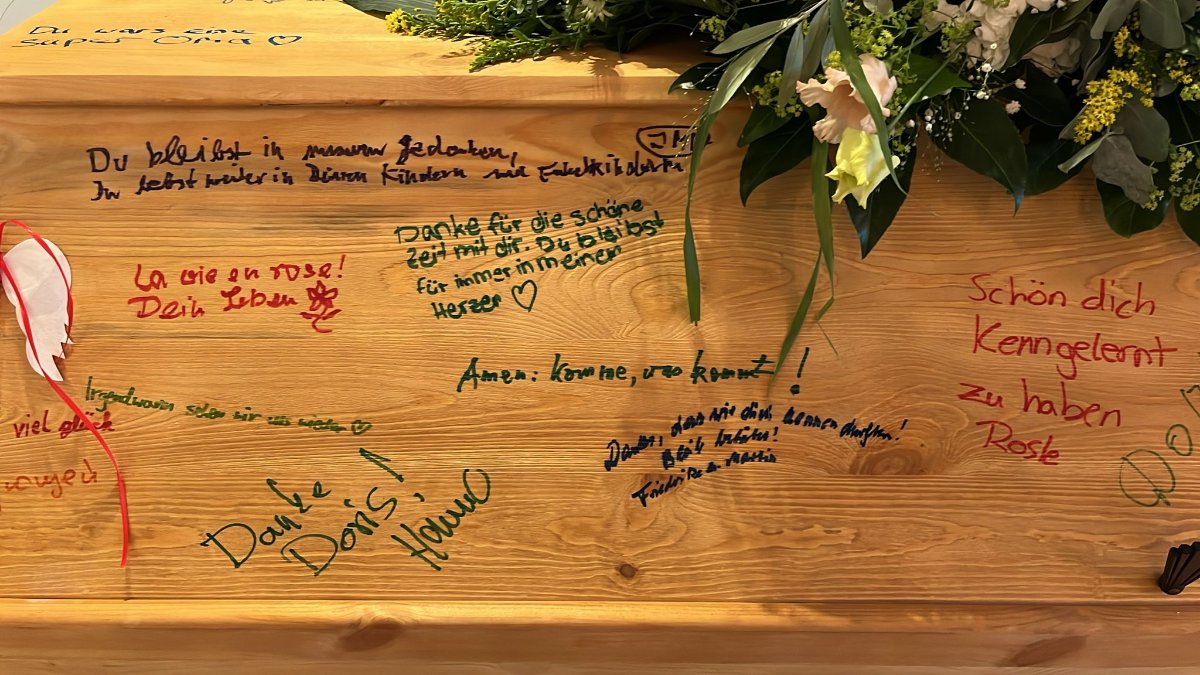 Du warst eine
super Oma
Du bleibst in unseren Gedanken,
Du lebst weiter in Deinen Kindern und Enkelkindern
JM
Danke für die schöne
Zeit mit dir. Du bleibst
für immer in meinem
Herzen
La vie en rose!
Dein Leben
Schön dich
Kenngelernt
zu haben
Amen: komme, was kommt!
Irgendwann sehen wir uns wieder
viel glück
Danke, dass wir dich kennen durften!
Bleib behütet!
Friederike u. Martin
Danke
Doris,
Hanno